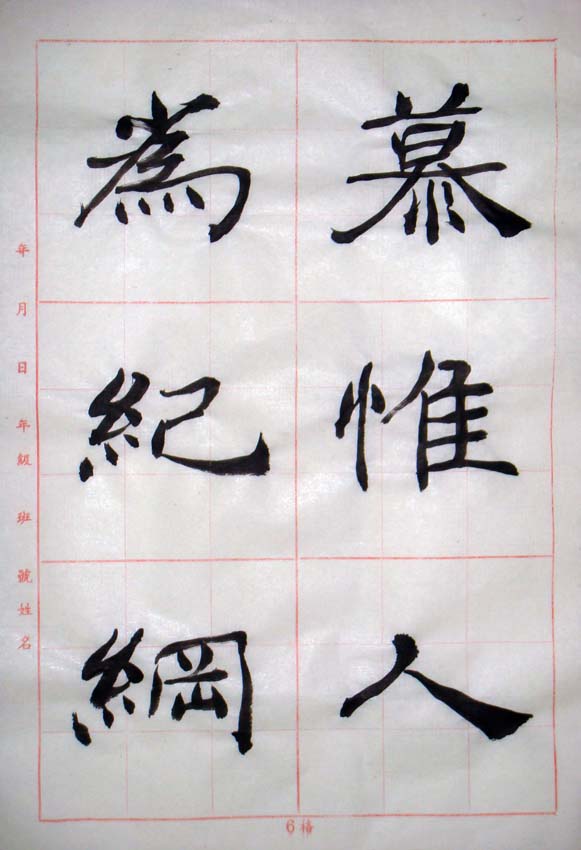 慕惟人
為紀綱
年 月 日 年級 班 號姓名